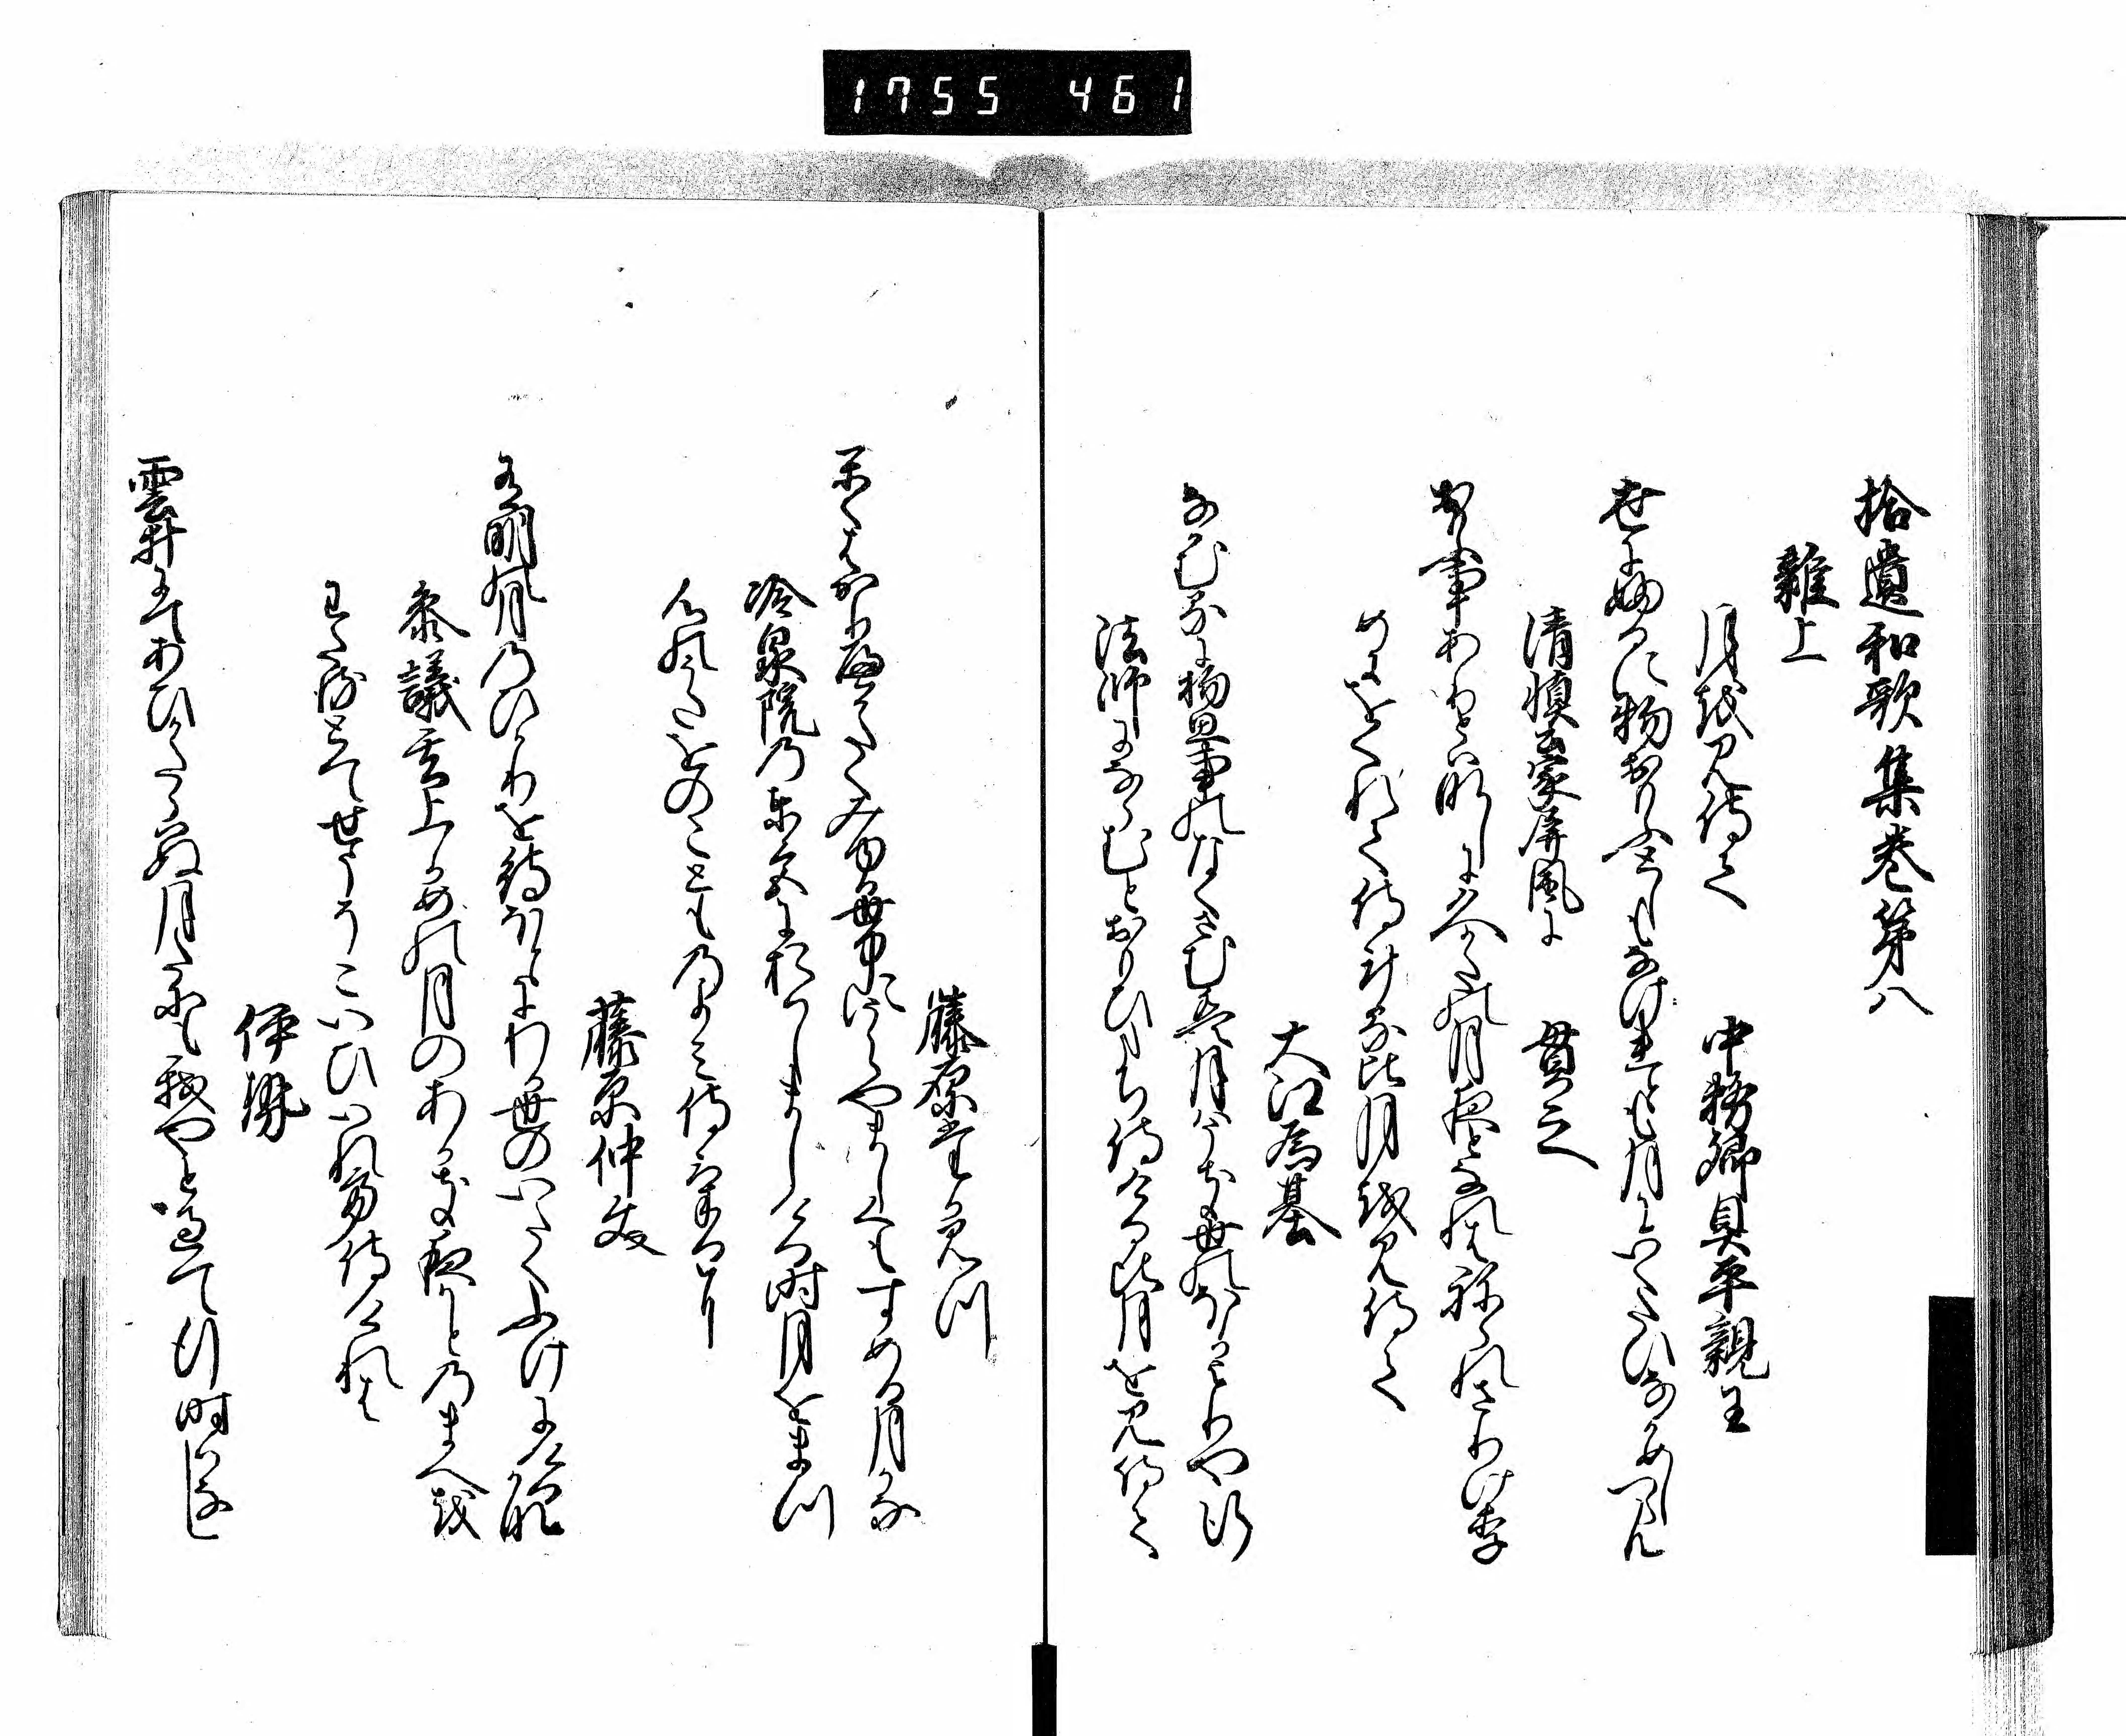 1755 461
拾遺和歌集巻第八
雑上
月を見侍て
中務卿具平親王
世にふるに物おもふとしもなけれとも月にいくたひなかめしつらん
清慎公家屏風に
貫之
おもふ事ありとはなしに久かたの月夜となれはねられさりけり
めにをくれて侍けるころ月を見侍て
大江為基
なかむるに物思事のなくさむは月はうき世のほかよりや行
法師にならむとおもひたち侍ける比月を見侍て
藤原たかみつ
かくはかりへかたくみゆる世中にうらやましくもすめる月かな
冷泉院の東宮におはしましける時月をまつ
心のうたをのこともものよみ侍けるに
藤原仲文
有明の月のひかりを待ほとにわか世のいたくふけにけるかな
参議玄上かめの月のあかき夜かとのまへを
わたるとてせうそこいひいれて侍けれは
伊勢
雲井にてあひかたらはぬ月たにも我やとすきて行時はなし